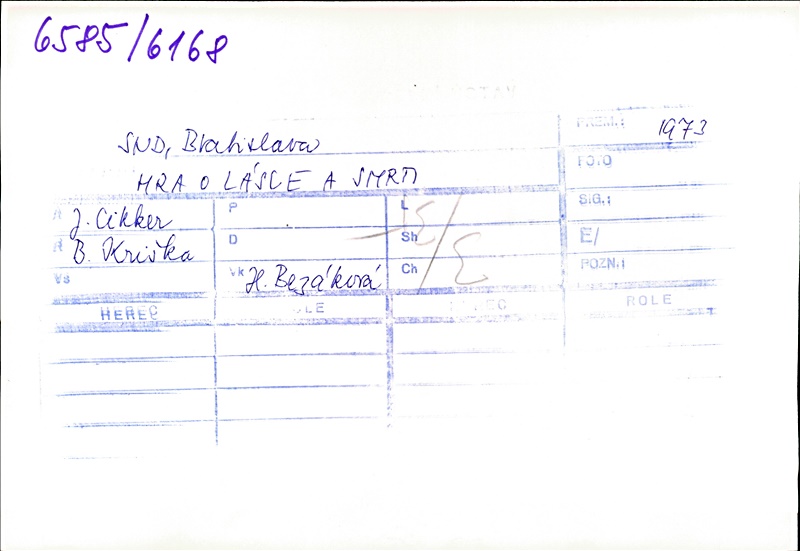 6585/6168
PREM.: 1973
SND, Bratislava
HRA O LÁSCE A SMRTI
FOTO
A J. Cikker P L SIG.:
R B. Kriška D Sh E/
Vs Vk H. Bezáková Ch POZN.:
HEREC ROLE HEREC ROLE